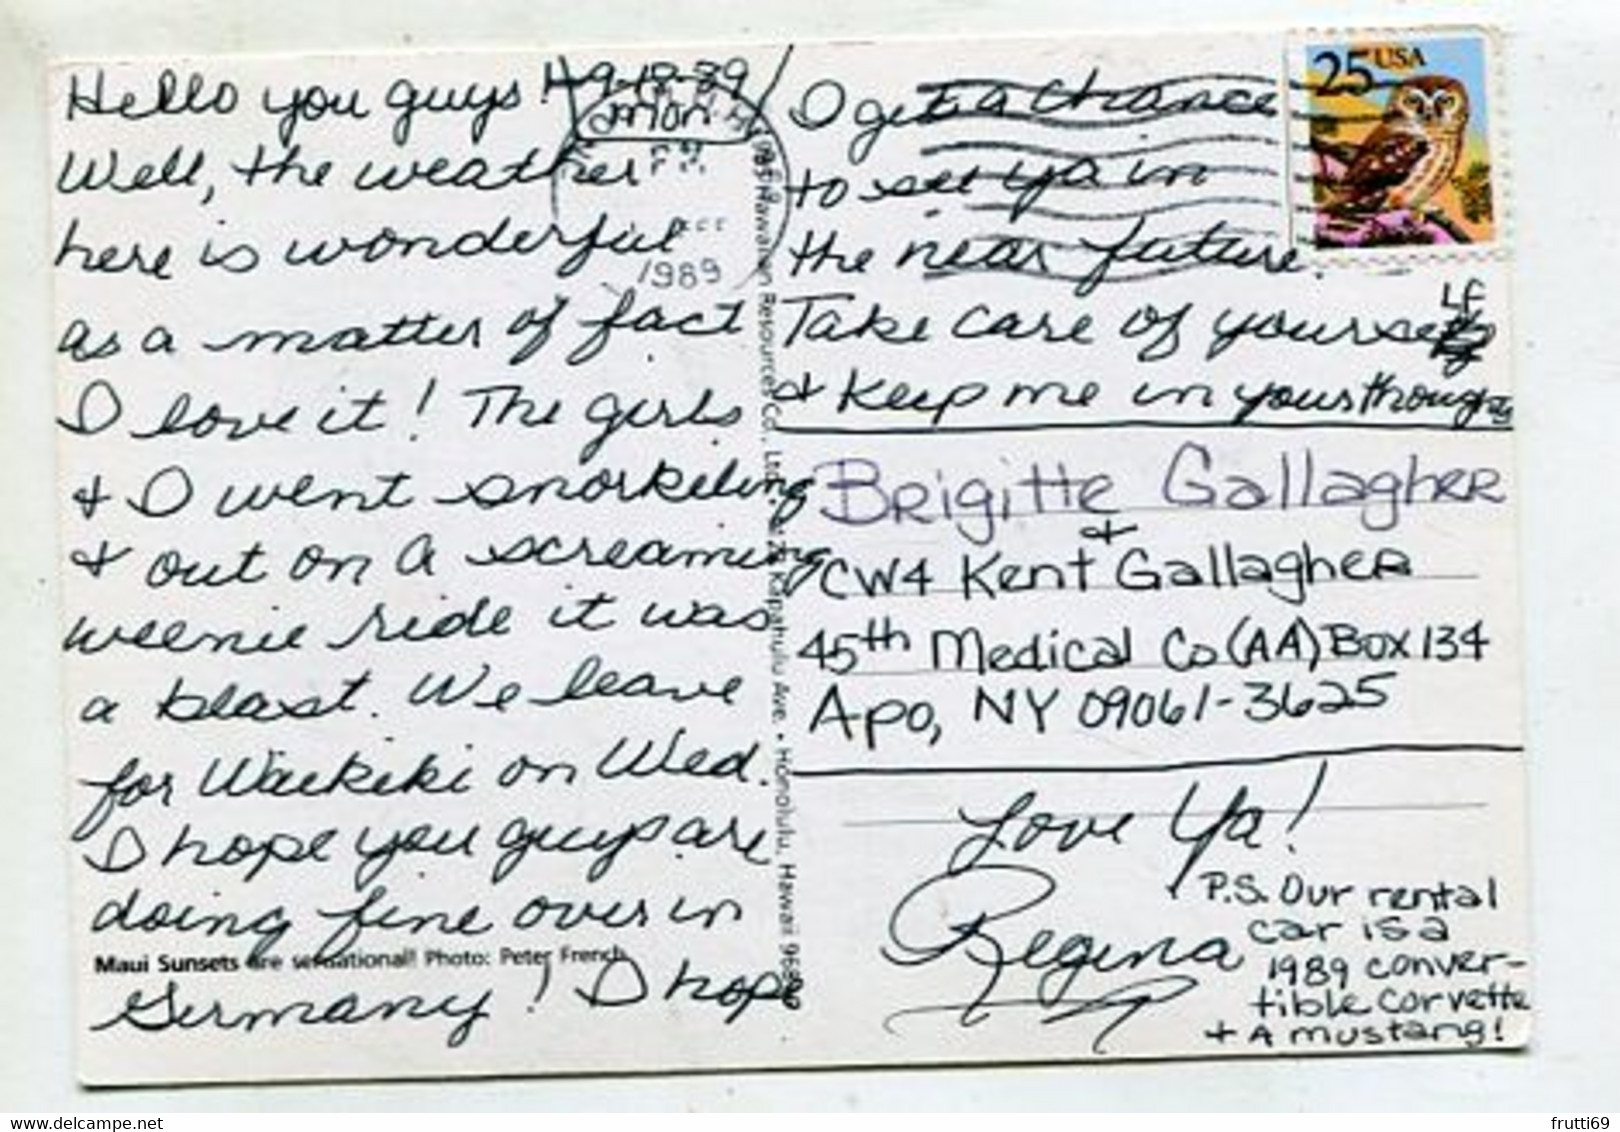 Hello you guys! 9-18-89
Mon.
Well, the weather
here is wonderful
as a matter of fact
I love it! The girls
& I went snorkeling
& out on a screaming
weenie ride it was
a blast. We leave
for Waikiki on Wed.
I hope you guys are
doing fine over in
Maui Sunsets are sensational! Photo: Peter French
Germany! I hope
PM
1989
Hawaiian Resources Co., Ltd. Kapahulu Ave. • Honolulu, Hawaii
25 USA
I get a chance
to see ya in
the near future.
Take care of yourself
& keep me in your thoughts
Brigitte Gallagher
+
CW4 Kent Gallagher
45th Medical Co (AA) Box 134
Apo, NY 09061-3625
Love Ya!
Regina
P.S. Our rental
car is a
1989 conver-
tible corvette
+ A mustang!
delcampe.net
frutti69